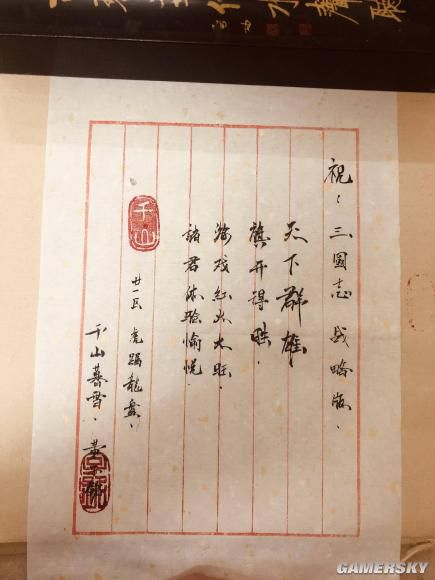 祝：三國志战略版．
天下群雄，
旗开得胜．
游戏红火大旺．
諸君体验愉悦．
千山
廿一区 虎踞龍盘．
千山暮雪．黄
GAMERSKY